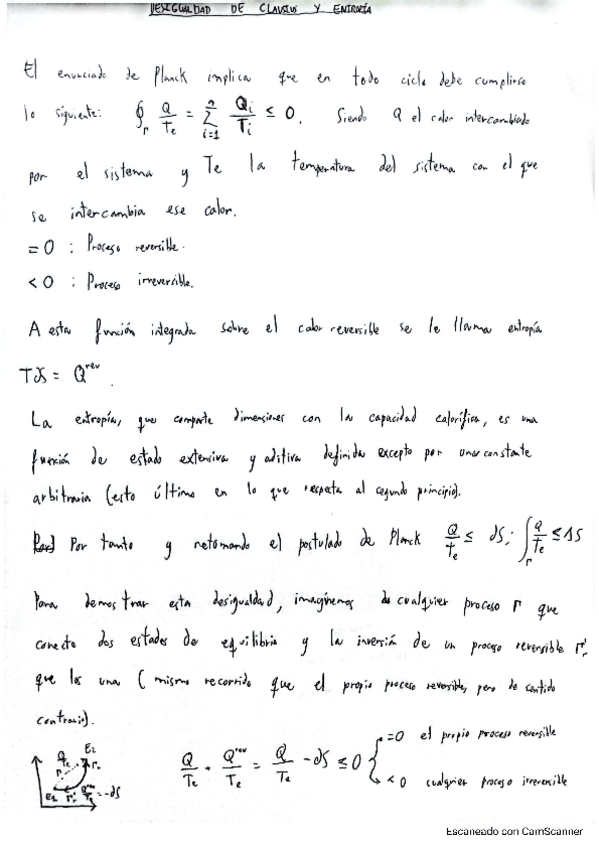 DESIGUALDAD DE CLAUSIUS Y ENTROPÍA
El enunciado de Planck implica que en todo ciclo debe cumplirse
lo siguiente: ∮_Γ Q/Te = Σ_{i=1}^{n} Qi/Ti ≤ 0. Siendo Q el calor intercambiado
por el sistema y Te la temperatura del sistema con el que
se intercambia ese calor.
= 0 : Proceso reversible.
< 0 : Proceso irreversible.
A esta función integrada sobre el calor reversible se le llama entropía
TdS = Q^rev.
La entropía, que comparte dimensiones con la capacidad calorífica, es una
función de estado extensiva y aditiva definida excepto por una constante
arbitraria (esto último en lo que respecta al segundo principio).
Por tanto y retomando el postulado de Planck Q/Te ≤ dS; ∫_Γ Q/Te ≤ ΔS
Para demostrar esta desigualdad, imaginemos cualquier proceso Γ que
conecte dos estados de equilibrio y la inversión de un proceso reversible Γr'
que los una (mismo recorrido que el propio proceso reversible, pero de sentido
contrario).
Q/Te + Q^rev/Te = Q/Te - dS ≤ 0 { =0 el propio proceso reversible
<0 cualquier proceso irreversible
Escaneado con CamScanner